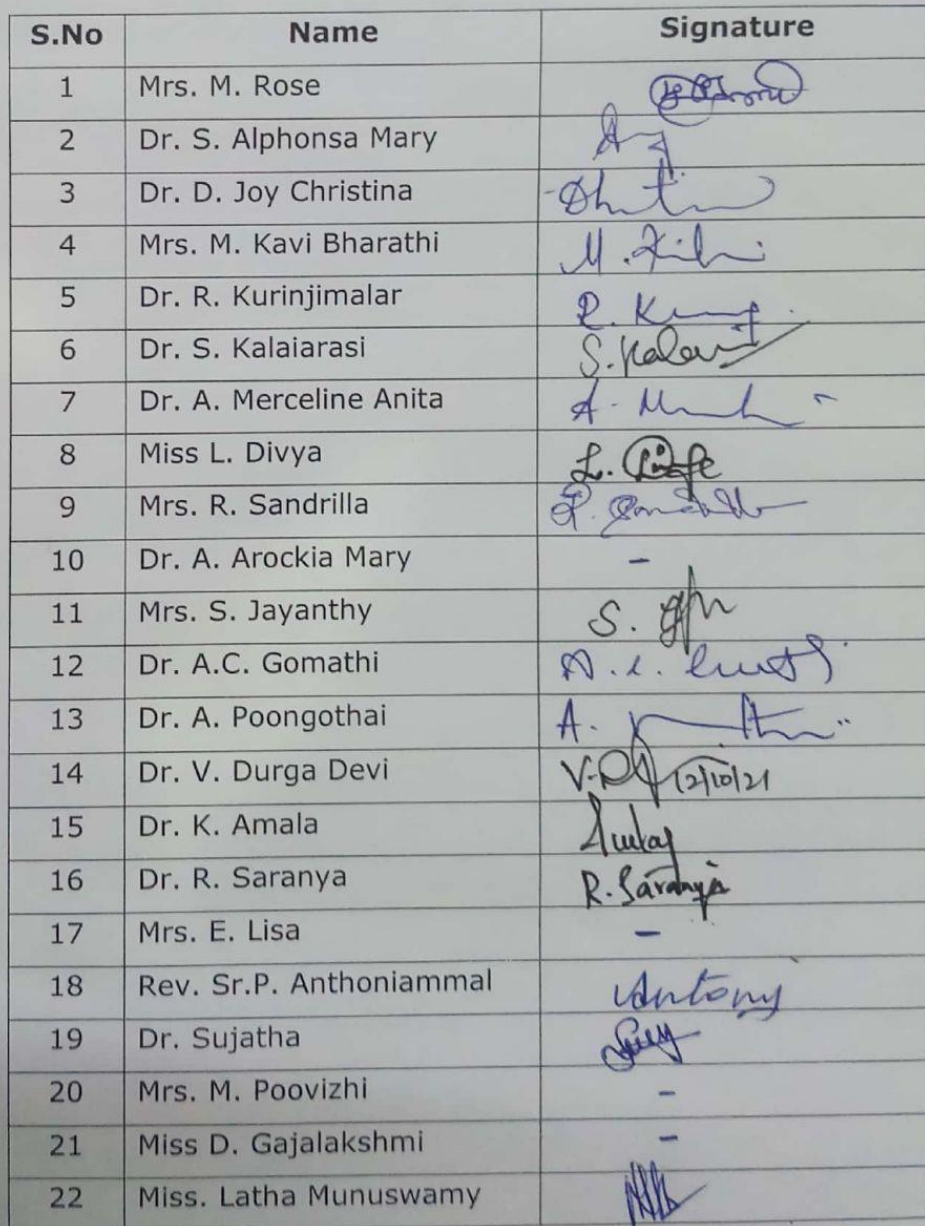 S.No Name Signature
1 Mrs. M. Rose
2 Dr. S. Alphonsa Mary
3 Dr. D. Joy Christina
4 Mrs. M. Kavi Bharathi M.
5 Dr. R. Kurinjimalar R.
6 Dr. S. Kalaiarasi S.
7 Dr. A. Merceline Anita A.
8 Miss L. Divya L.
9 Mrs. R. Sandrilla
10 Dr. A. Arockia Mary -
11 Mrs. S. Jayanthy S.
12 Dr. A.C. Gomathi
13 Dr. A. Poongothai A.
14 Dr. V. Durga Devi 12/10/21
15 Dr. K. Amala
16 Dr. R. Saranya R. Saranya
17 Mrs. E. Lisa -
18 Rev. Sr.P. Anthoniammal Antony
19 Dr. Sujatha
20 Mrs. M. Poovizhi -
21 Miss D. Gajalakshmi -
22 Miss. Latha Munuswamy